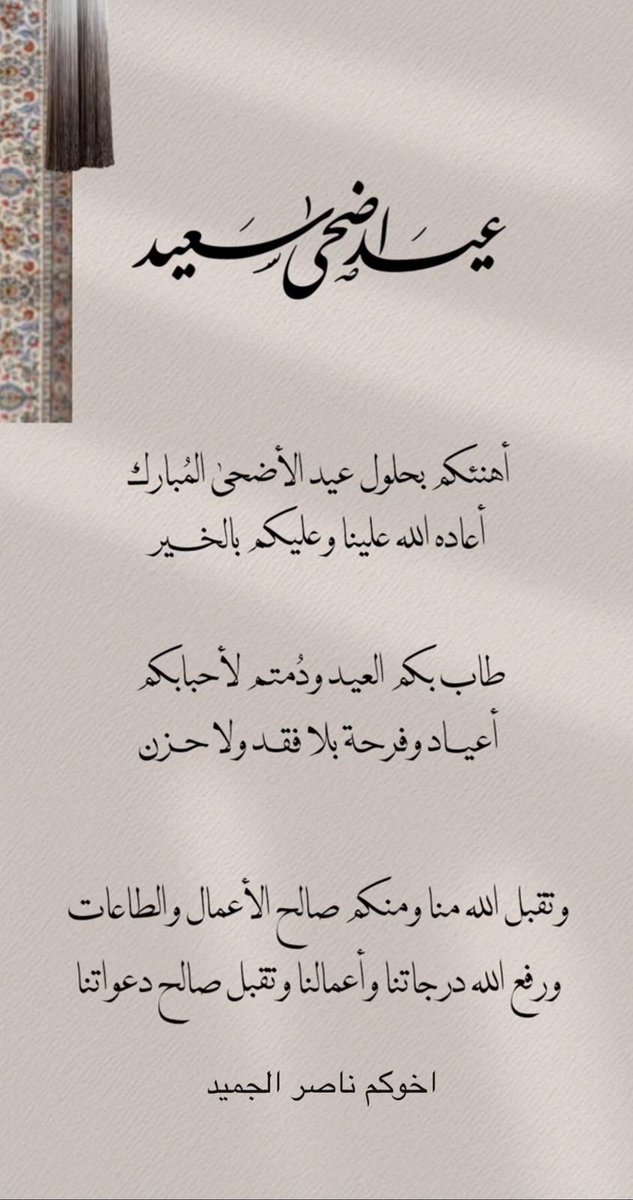 عيد اضحى سعيد
أهنئكم بحلول عيد الأضحىٰ المُبارك
أعاده الله علينا وعليكم بالخير
طاب بكم العيد ودُمتم لأحبابكم
أعياد وفرحة بلا فقد ولا حزن
وتقبل الله منا ومنكم صالح الأعمال والطاعات
ورفع الله درجاتنا وأعمالنا وتقبل صالح دعواتنا
اخوكم ناصر الجميد